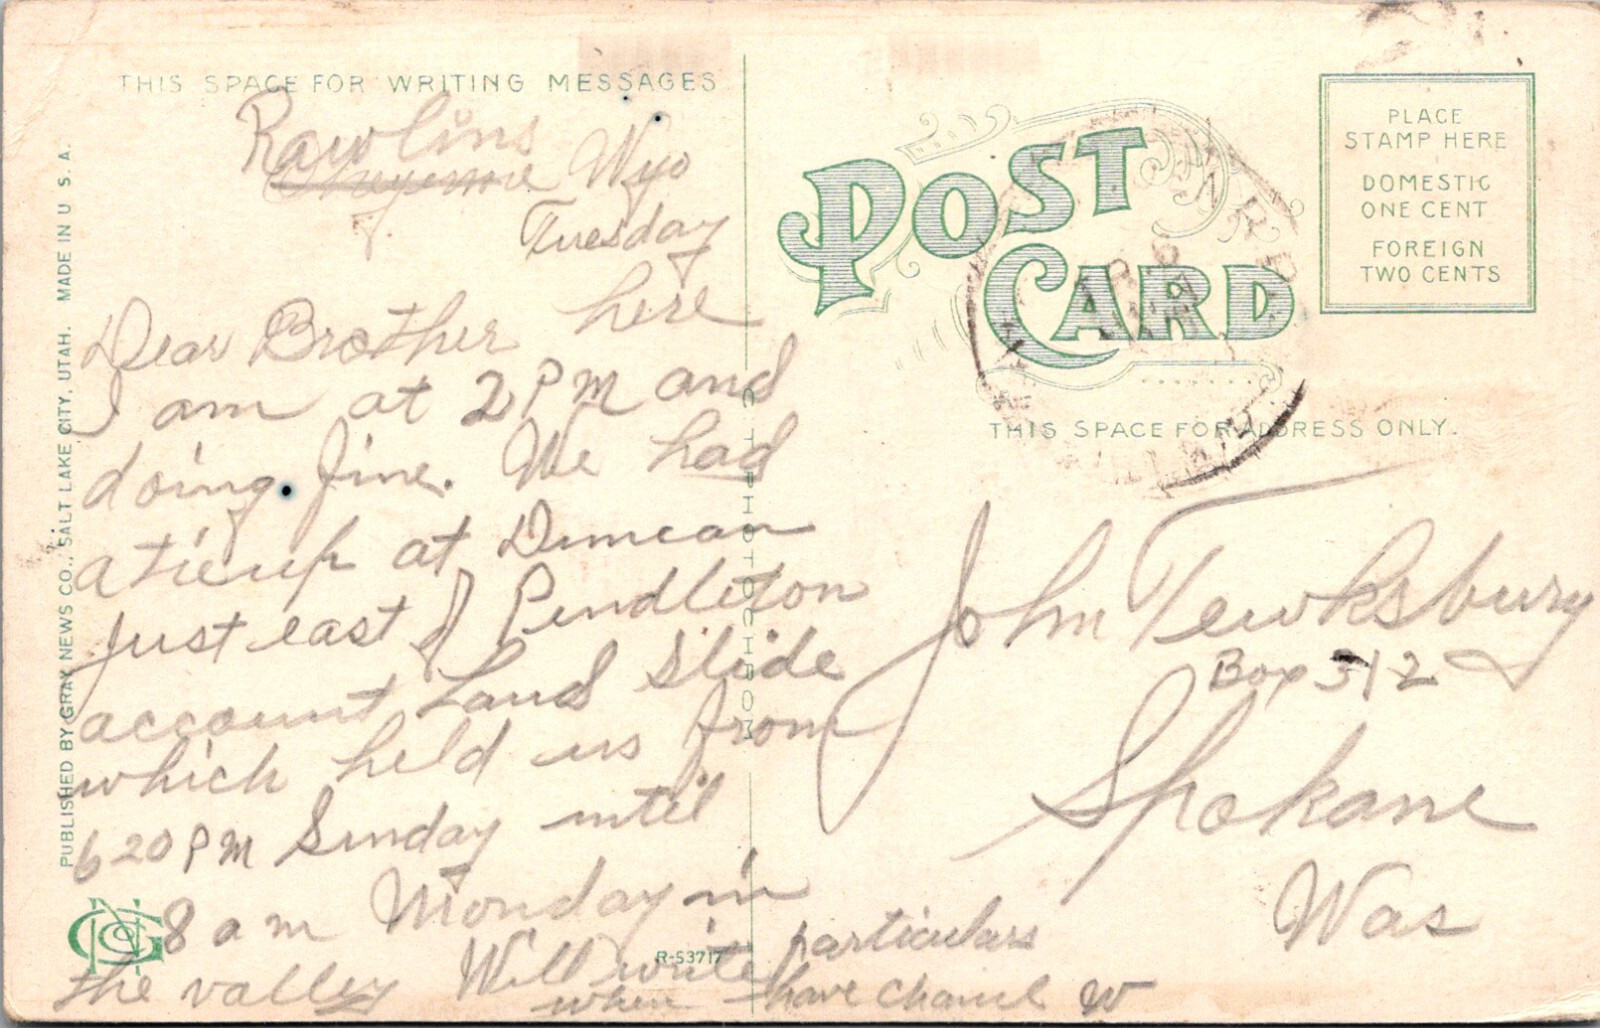 THIS SPACE FOR WRITING MESSAGES
Rawlins
Cheyenne Wyo
Tuesday
Dear Brother here
I am at 2 PM and
doing fine. We had
a tie up at Duncan
just east of Pendleton
account Land Slide
which held us from
620 PM Sunday until
8 am Monday in
the valley Will write particulars
when have chance W
PUBLISHED BY GRAY NEWS CO., SALT LAKE CITY, UTAH. MADE IN U S. A.
C. T. PHOTOCHROM
R-53717
POST
CARD
PLACE
STAMP HERE
DOMESTIC
ONE CENT
FOREIGN
TWO CENTS
THIS SPACE FOR ADDRESS ONLY.
John Tewksbury
Box 312
Spokane
Was